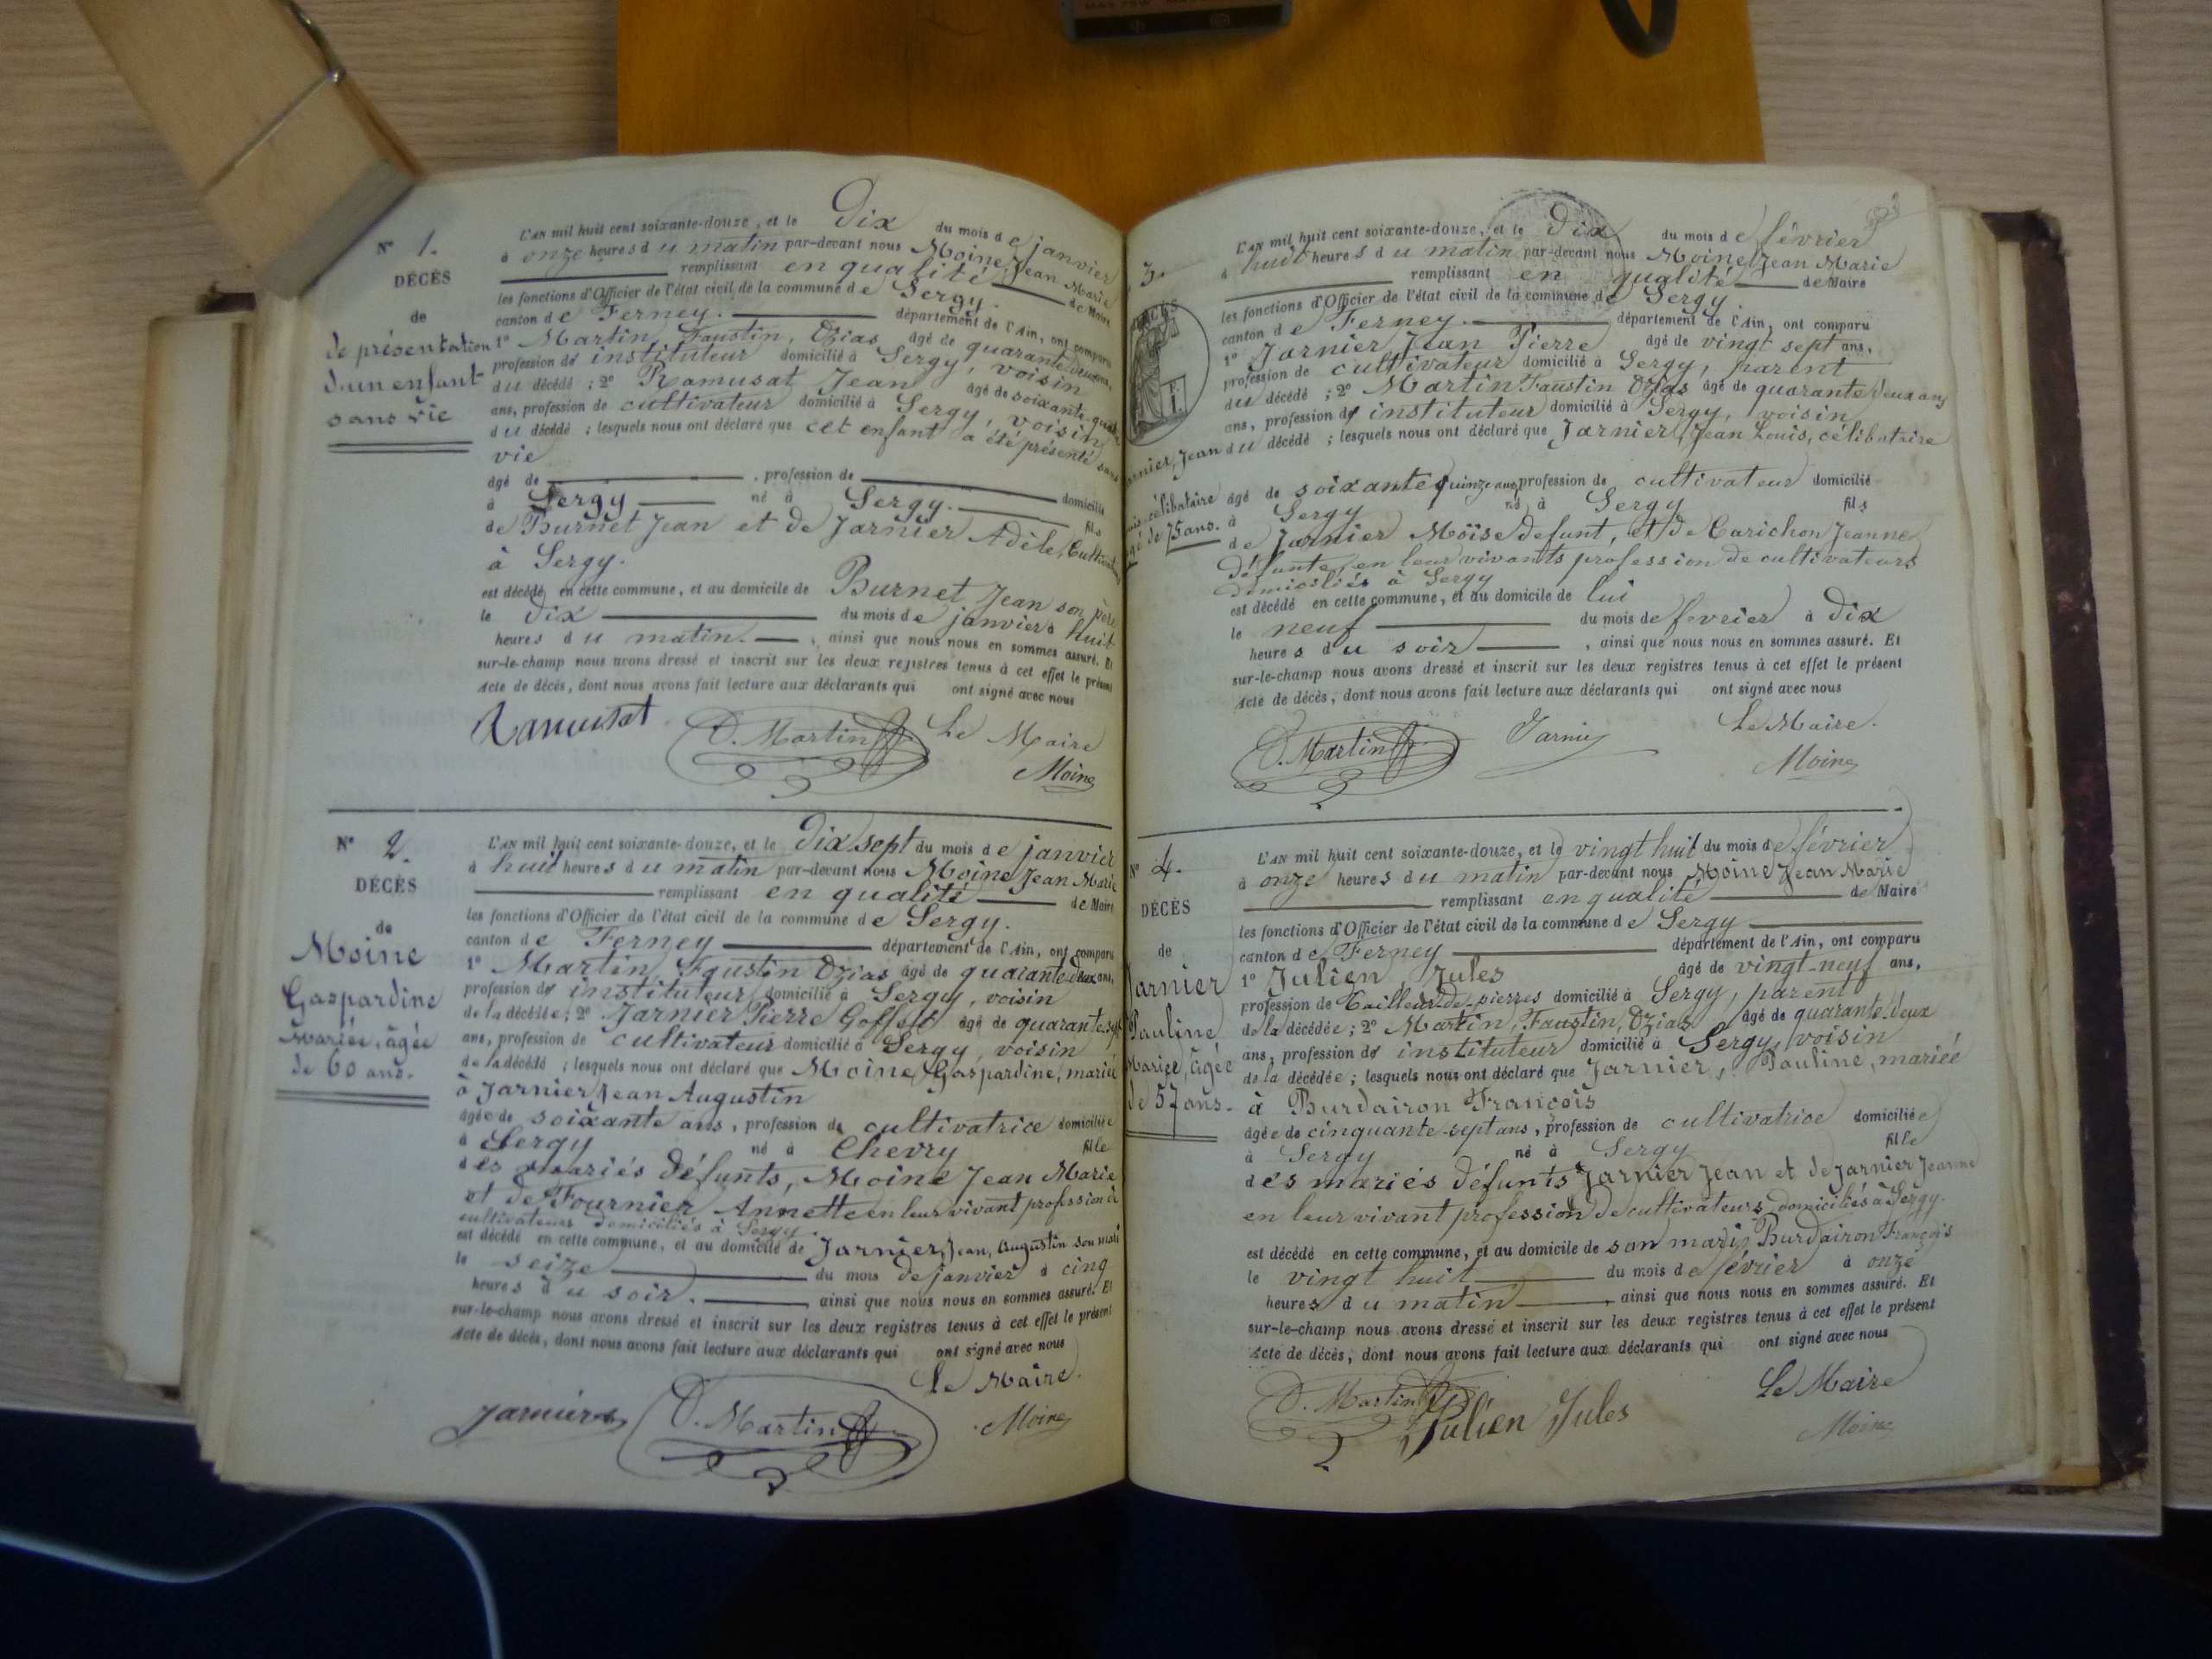 N° 1.
DÉCÈS
de
de présentation
d'un enfant
sans vie
L'AN mil huit cent soixante-douze, et le Dix du mois de janvier
à onze heures du matin par-devant nous Moine, Jean Marie
remplissant en qualité de Maire
les fonctions d'Officier de l'état civil de la commune de Sergy.
canton de Ferney. département de l'Ain, ont comparu
1° Martin, Faustin, Ozias âgé de quarante deux ans,
profession de instituteur domicilié à Sergy, voisin
du décédé ; 2° Ramusat Jean âgé de soixante quatre
ans, profession de cultivateur domicilié à Sergy, voisin
du décédé ; lesquels nous ont déclaré que cet enfant a été présenté sans
vie
âgé de , profession de domicilié
à Sergy né à Sergy. fils
de Burnet Jean et de Jarnier Adèle, Cultivateurs
à Sergy.
est décédé en cette commune, et au domicile de Burnet Jean son père
le dix du mois de janvier à huit
heures du matin. , ainsi que nous nous en sommes assuré. Et
sur-le-champ nous avons dressé et inscrit sur les deux registres tenus à cet effet le présent
Acte de décès, dont nous avons fait lecture aux déclarants qui ont signé avec nous
Ramusat O. Martin Le Maire
Moine
N° 2.
DÉCÈS
de
Moine
Gaspardine
Mariée, âgée
de 60 ans.
L'AN mil huit cent soixante-douze, et le Dix sept du mois de janvier
à huit heures du matin par-devant nous Moine Jean Marie
remplissant en qualité de Maire
les fonctions d'Officier de l'état civil de la commune de Sergy.
canton de Ferney département de l'Ain, ont comparu
1° Martin, Faustin Ozias âgé de quarante deux ans,
profession de instituteur domicilié à Sergy, voisin
de la décédée ; 2° Jarnier Pierre Goffed âgé de quarante sept
ans, profession de cultivateur domicilié à Sergy, voisin
de la décédé ; lesquels nous ont déclaré que Moine, Gaspardine, mariée
à Jarnier Jean Augustin
âgée de soixante ans, profession de cultivatrice domiciliée
à Sergy né à Chevry fille
des mariés défunts, Moine Jean Marie
et de Fournier Annette en leur vivant profession de
cultivateurs domiciliés à Sergy
est décédé en cette commune, et au domicile de Jarnier, Jean, Augustin son mari
le seize du mois de janvier à cinq
heures du soir. , ainsi que nous nous en sommes assuré. Et
sur-le-champ nous avons dressé et inscrit sur les deux registres tenus à cet effet le présent
Acte de décès, dont nous avons fait lecture aux déclarants qui ont signé avec nous
Le Maire.
Jarnier O. Martin Moine
3.
DÉCÈS
Jarnier, Jean
Louis, célibataire
âgé de 75 ans.
L'AN mil huit cent soixante-douze, et le Dix du mois de février
à huit heures du matin par-devant nous Moine Jean Marie
remplissant en qualité de Maire
les fonctions d'Officier de l'état civil de la commune de Sergy.
canton de Ferney. département de l'Ain, ont comparu
1° Jarnier Jean Pierre âgé de vingt sept ans,
profession de cultivateur domicilié à Sergy, parent
du décédé ; 2° Martin Faustin Ozias âgé de quarante deux ans
ans, profession de instituteur domicilié à Sergy, voisin
du décédé ; lesquels nous ont déclaré que Jarnier, Jean Louis, célibataire
âgé de soixante quinze ans, profession de cultivateur domicilié
à Sergy né à Sergy fils
de Jarnier Moïse défunt, et de Carichon Jeanne
défunte, en leur vivants profession de cultivateurs
domiciliés à Sergy
est décédé en cette commune, et au domicile de lui
le neuf du mois de fevrier à dix
heures du soir , ainsi que nous nous en sommes assuré. Et
sur-le-champ nous avons dressé et inscrit sur les deux registres tenus à cet effet le présent
Acte de décès, dont nous avons fait lecture aux déclarants qui ont signé avec nous
O. Martin Jarnier Le Maire.
Moine
N° 4.
DÉCÈS
de
Jarnier
Pauline
Mariée, âgée
de 57 ans.
L'AN mil huit cent soixante-douze, et le vingt huit du mois de février
à onze heures du matin par-devant nous Moine Jean Marie
remplissant en qualité de Maire
les fonctions d'Officier de l'état civil de la commune de Sergy
canton de Ferney département de l'Ain, ont comparu
1° Julien, Jules âgé de vingt-neuf ans,
profession de Tailleur-de-pierres domicilié à Sergy, parent
de la décédée ; 2° Martin, Faustin, Ozias âgé de quarante deux
ans, profession de instituteur domicilié à Sergy, voisin
de la décédée ; lesquels nous ont déclaré que Jarnier, Pauline, mariée
à Burdairon François
âgée de cinquante-sept ans, profession de cultivatrice domiciliée
à Sergy né à Sergy fille
des mariés défunts Jarnier Jean et de Jarnier Jeanne
en leur vivant profession de cultivateurs domiciliés à Sergy.
est décédé en cette commune, et au domicile de son mari, Burdairon François
le vingt huit du mois de février à onze
heures du matin , ainsi que nous nous en sommes assuré. Et
sur-le-champ nous avons dressé et inscrit sur les deux registres tenus à cet effet le présent
Acte de décès, dont nous avons fait lecture aux déclarants qui ont signé avec nous
O. Martin Julien Jules Le Maire
Moine